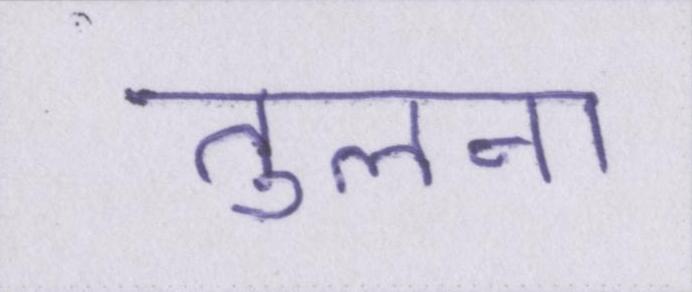 तुलना